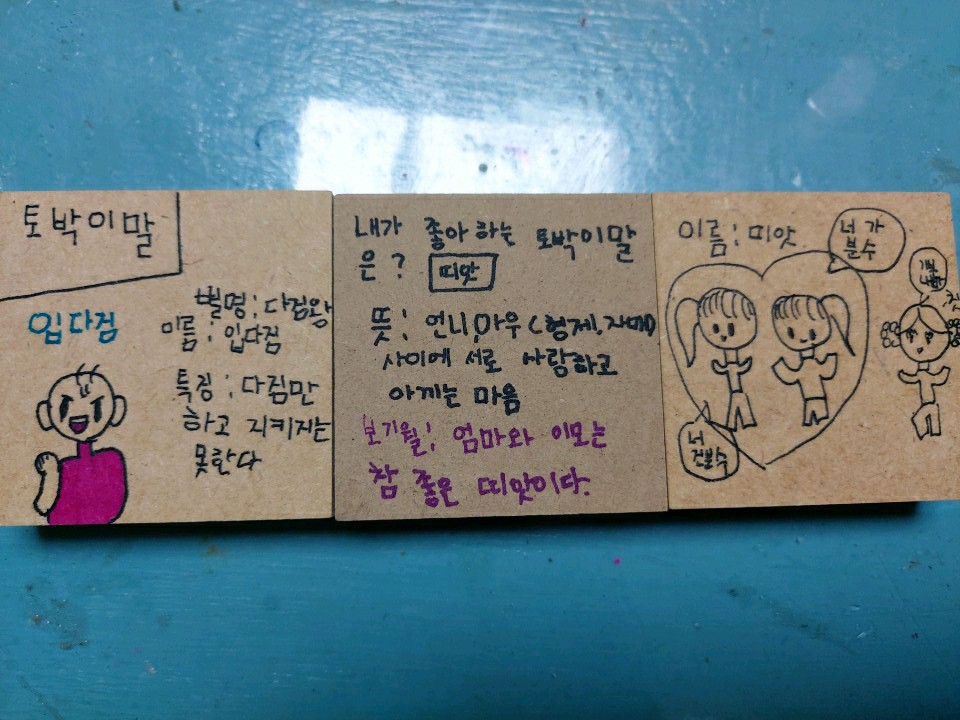 토박이말
입다짐
별명: 다짐왕
이름: 입다짐
특징: 다짐만
하고 지키지는
못한다
내가 좋아하는 토박이말
은? 띠앗
뜻: 언니,아우(형제,자매)
사이에 서로 사랑하고
아끼는 마음
보기월: 엄마와 이모는
참 좋은 띠앗이다.
이름: 띠앗
너가
분수
너
건분수